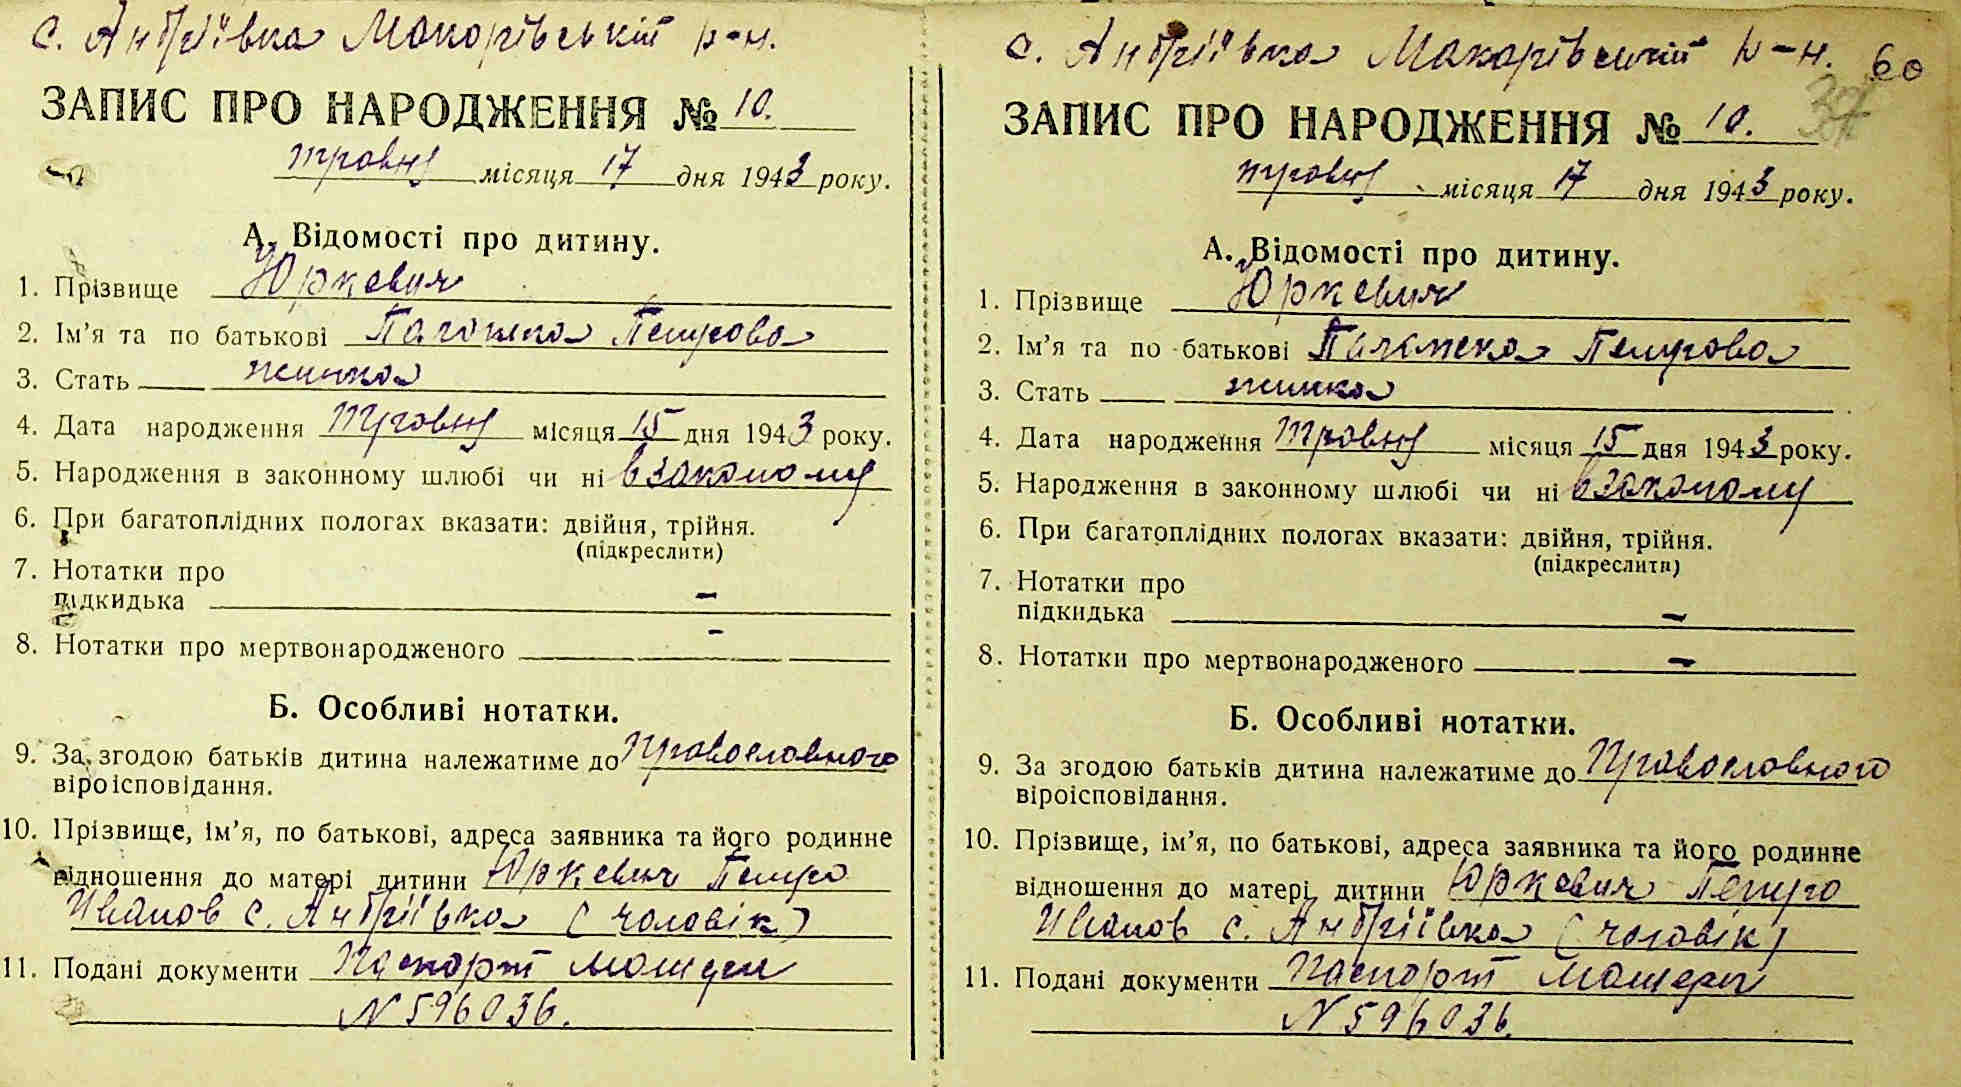 с. Андріївка Макарівський р-н.
ЗАПИС ПРО НАРОДЖЕННЯ № 10.
травня місяця 17 дня 1943 року.
А. Відомості про дитину.
1. Прізвище Юркевич
2. Ім'я та по батькові Парашка Петрова
3. Стать жинка
4. Дата народження травня місяця 15 дня 1943 року.
5. Народження в законному шлюбі чи ні в законому
6. При багатоплідних пологах вказати: двійня, трійня.
(підкреслити)
7. Нотатки про
підкидька –
8. Нотатки про мертвонародженого –
Б. Особливі нотатки.
9. За згодою батьків дитина належатиме до Православного
віроісповідання.
10. Прізвище, ім'я, по батькові, адреса заявника та його родинне
відношення до матері дитини Юркевич Петро
Иванов с. Андріївка (чоловік)
11. Подані документи Паспорт матери
N 596036.
с. Андріївка Макарівський р-н. 60
ЗАПИС ПРО НАРОДЖЕННЯ № 10.
травня місяця 17 дня 1943 року.
А. Відомості про дитину.
1. Прізвище Юркевич
2. Ім'я та по батькові Петрова
3. Стать жинка
4. Дата народження травня місяця 15 дня 1943 року.
5. Народження в законному шлюбі чи ні в законому
6. При багатоплідних пологах вказати: двійня, трійня.
(підкреслити)
7. Нотатки про
підкидька –
8. Нотатки про мертвонародженого –
Б. Особливі нотатки.
9. За згодою батьків дитина належатиме до Православного
віроісповідання.
10. Прізвище, ім'я, по батькові, адреса заявника та його родинне
відношення до матері дитини Юркевич Петро
Иванов с. Андріївка (чоловік)
11. Подані документи Паспорт матери
N 596036.